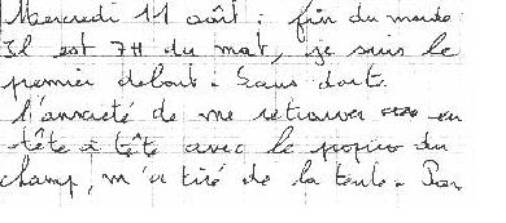 Mercredi 11 août : fin du monde
Il est 7H du mat, je suis le
premier debout. Sans doute
l'anxiété de me retrouver en
tête à tête avec le proprio du
champ, m'a tiré de la tente. Par